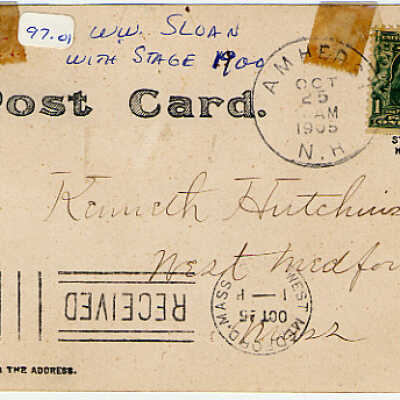 97.01
W.W. SLOAN
WITH STAGE 1900
Post Card.
AMHERST
OCT
25
AM
1905
N.H.
1
Kenneth Hutchins
West Medfo
Mass
RECEIVED
WEST MEDFORD, MASS
1 — P
OCT 25
THE ADDRESS.